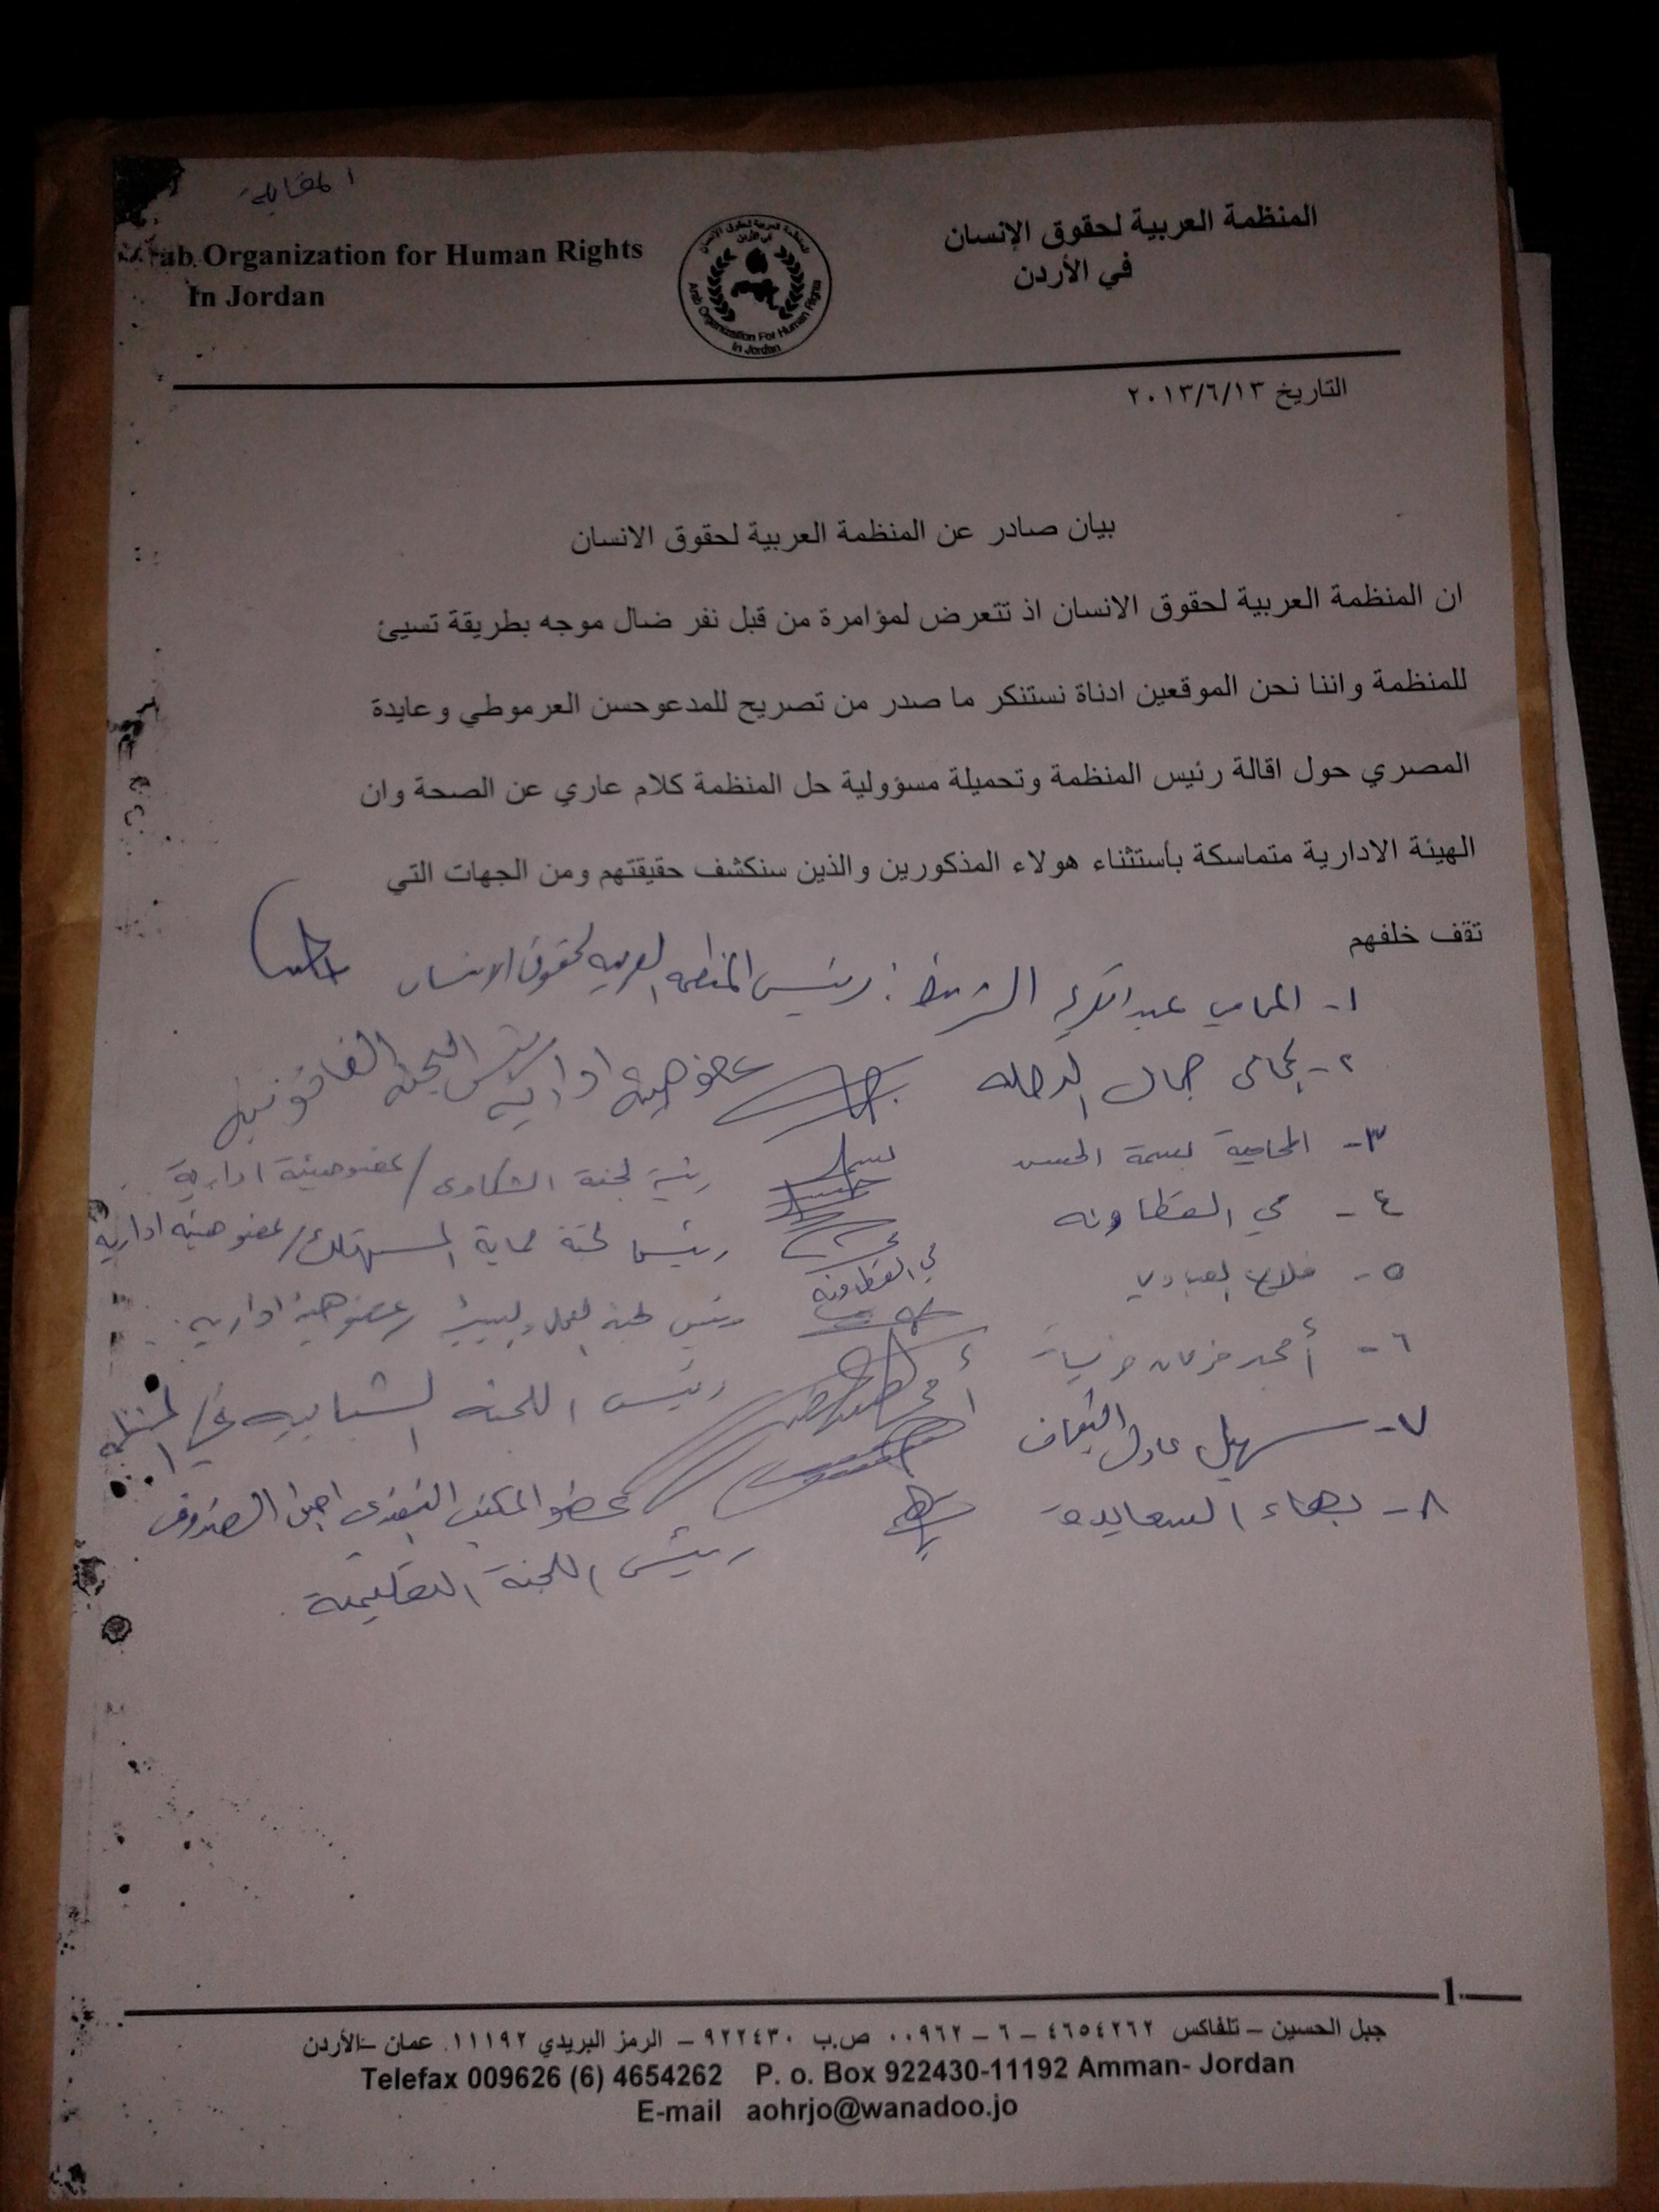 المقابله
ab Organization for Human Rights
In Jordan
المنظمة العربية لحقوق الإنسان
في الأردن
المنظمة العربية لحقوق الإنسان
في الأردن
Arab Organization For Human Rights
In Jordan
التاريخ ٢٠١٣/٦/١٣
بيان صادر عن المنظمة العربية لحقوق الانسان
ان المنظمة العربية لحقوق الانسان اذ تتعرض لمؤامرة من قبل نفر ضال موجه بطريقة تسيئ
للمنظمة واننا نحن الموقعين ادناة نستنكر ما صدر من تصريح للمدعوحسن العرموطي وعايدة
المصري حول اقالة رئيس المنظمة وتحميلة مسؤولية حل المنظمة كلام عاري عن الصحة وان
الهيئة الادارية متماسكة بأستثناء هولاء المذكورين والذين سنكشف حقيقتهم ومن الجهات التي
تقف خلفهم
١- المحامي عبدالكريم الشريدة : رئيس المنظمه العربيه لحقوق الانسان
٢- جمال عضو هيئة ادارية رئيس اللجنه القانونيه
٣- المحامية بسمة الحسن رئيسة لجنة الشكاوى / عضو هيئة ادارية
٤- مي القطاونه رئيس لجنة حماية المستهلك / عضو هيئة ادارية
مي القطاونه
٥- فلاح العبادي رئيس لجنة العمل والبيئة / عضو هيئة ادارية
٦- أمجد رئيس اللجنة الشبابيه في المنظمة
٧- سهيل عادل عضو المكتب التنفيذي امين الصندوق
٨- بهاء السعايدة رئيس اللجنة التعليمية
1
جبل الحسين – تلفاكس ٤٦٥٤٢٦٢ – ٦ – ٠٠٩٦٢ ص.ب ٩٢٢٤٣٠ – الرمز البريدي ١١١٩٢. عمان –الأردن
Telefax 009626 (6) 4654262 P. o. Box 922430-11192 Amman- Jordan
E-mail aohrjo@wanadoo.jo